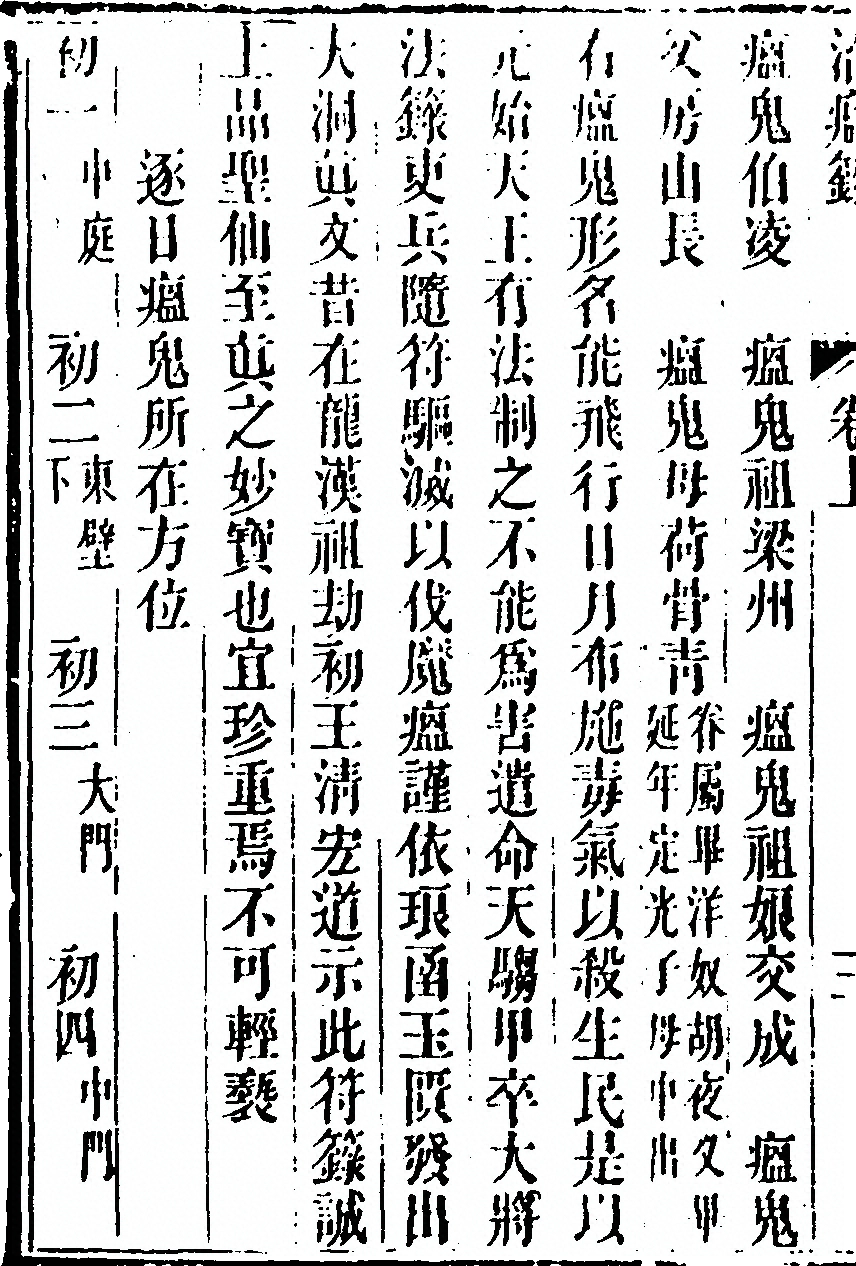 治瘟籙 卷上 二
瘟鬼伯凌 瘟鬼祖梁州 瘟鬼祖娘交成 瘟鬼
父房山長 瘟鬼母荷骨靑 眷屬畢洋奴胡夜叉甲延年定光子母中出
右瘟鬼形名能飛行日月布施毒氣以殺生民是以
元始天王有法制之不能爲害遣命天騶甲卒大將
法籙吏兵隨符驅滅以伐魔瘟謹依琅函玉匱發出
大洞眞文昔在龍漢祖劫初王清宏道示此符籙誠
上品聖仙至眞之妙寶也宜珍重焉不可輕褻
逐日瘟鬼所在方位
初一 中庭 初二 東壁下 初三 大門 初四 中門